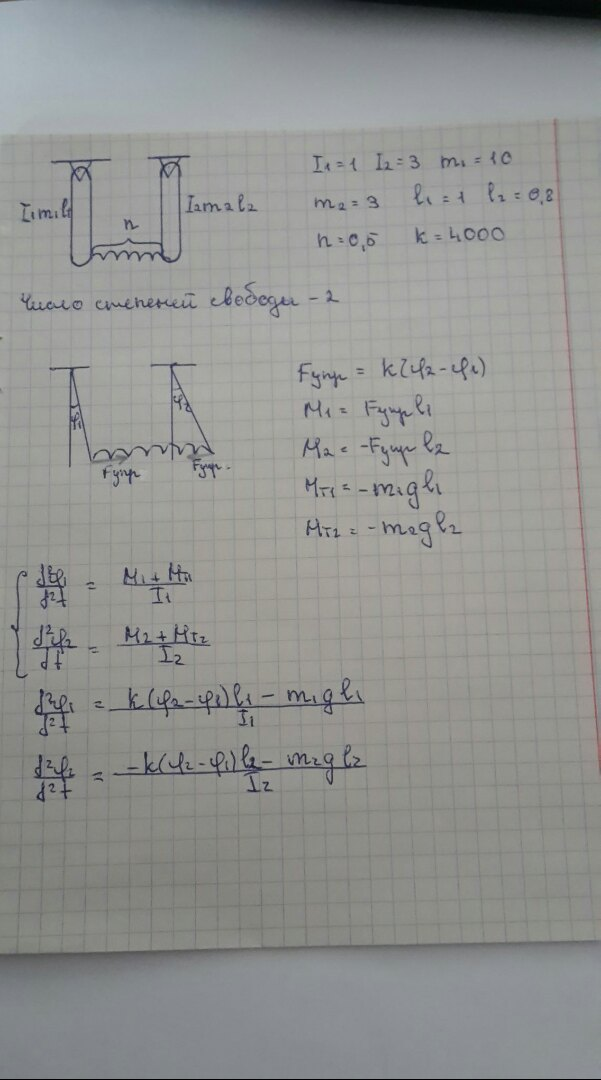 I₁=1 I₂=3 m₁=10
I₁m₁l₁ I₂m₂l₂ m₂=3 l₁=1 l₂=0,8
n n=0,5 k=4000
Число степеней свободы - 2
φ₁ φ₂ Fупр = k(φ₂-φ₁)
M₁ = Fупр l₁
Fупр Fупр. M₂ = -Fупр l₂
Mт₁ = -m₁gl₁
Mт₂ = -m₂gl₂
d²φ₁/d²t = (M₁+Mт₁)/I₁
d²φ₂/d²t = (M₂+Mт₂)/I₂
d²φ₁/d²t = (k(φ₂-φ₁)l₁ - m₁gl₁)/I₁
d²φ₂/d²t = (-k(φ₂-φ₁)l₂ - m₂gl₂)/I₂